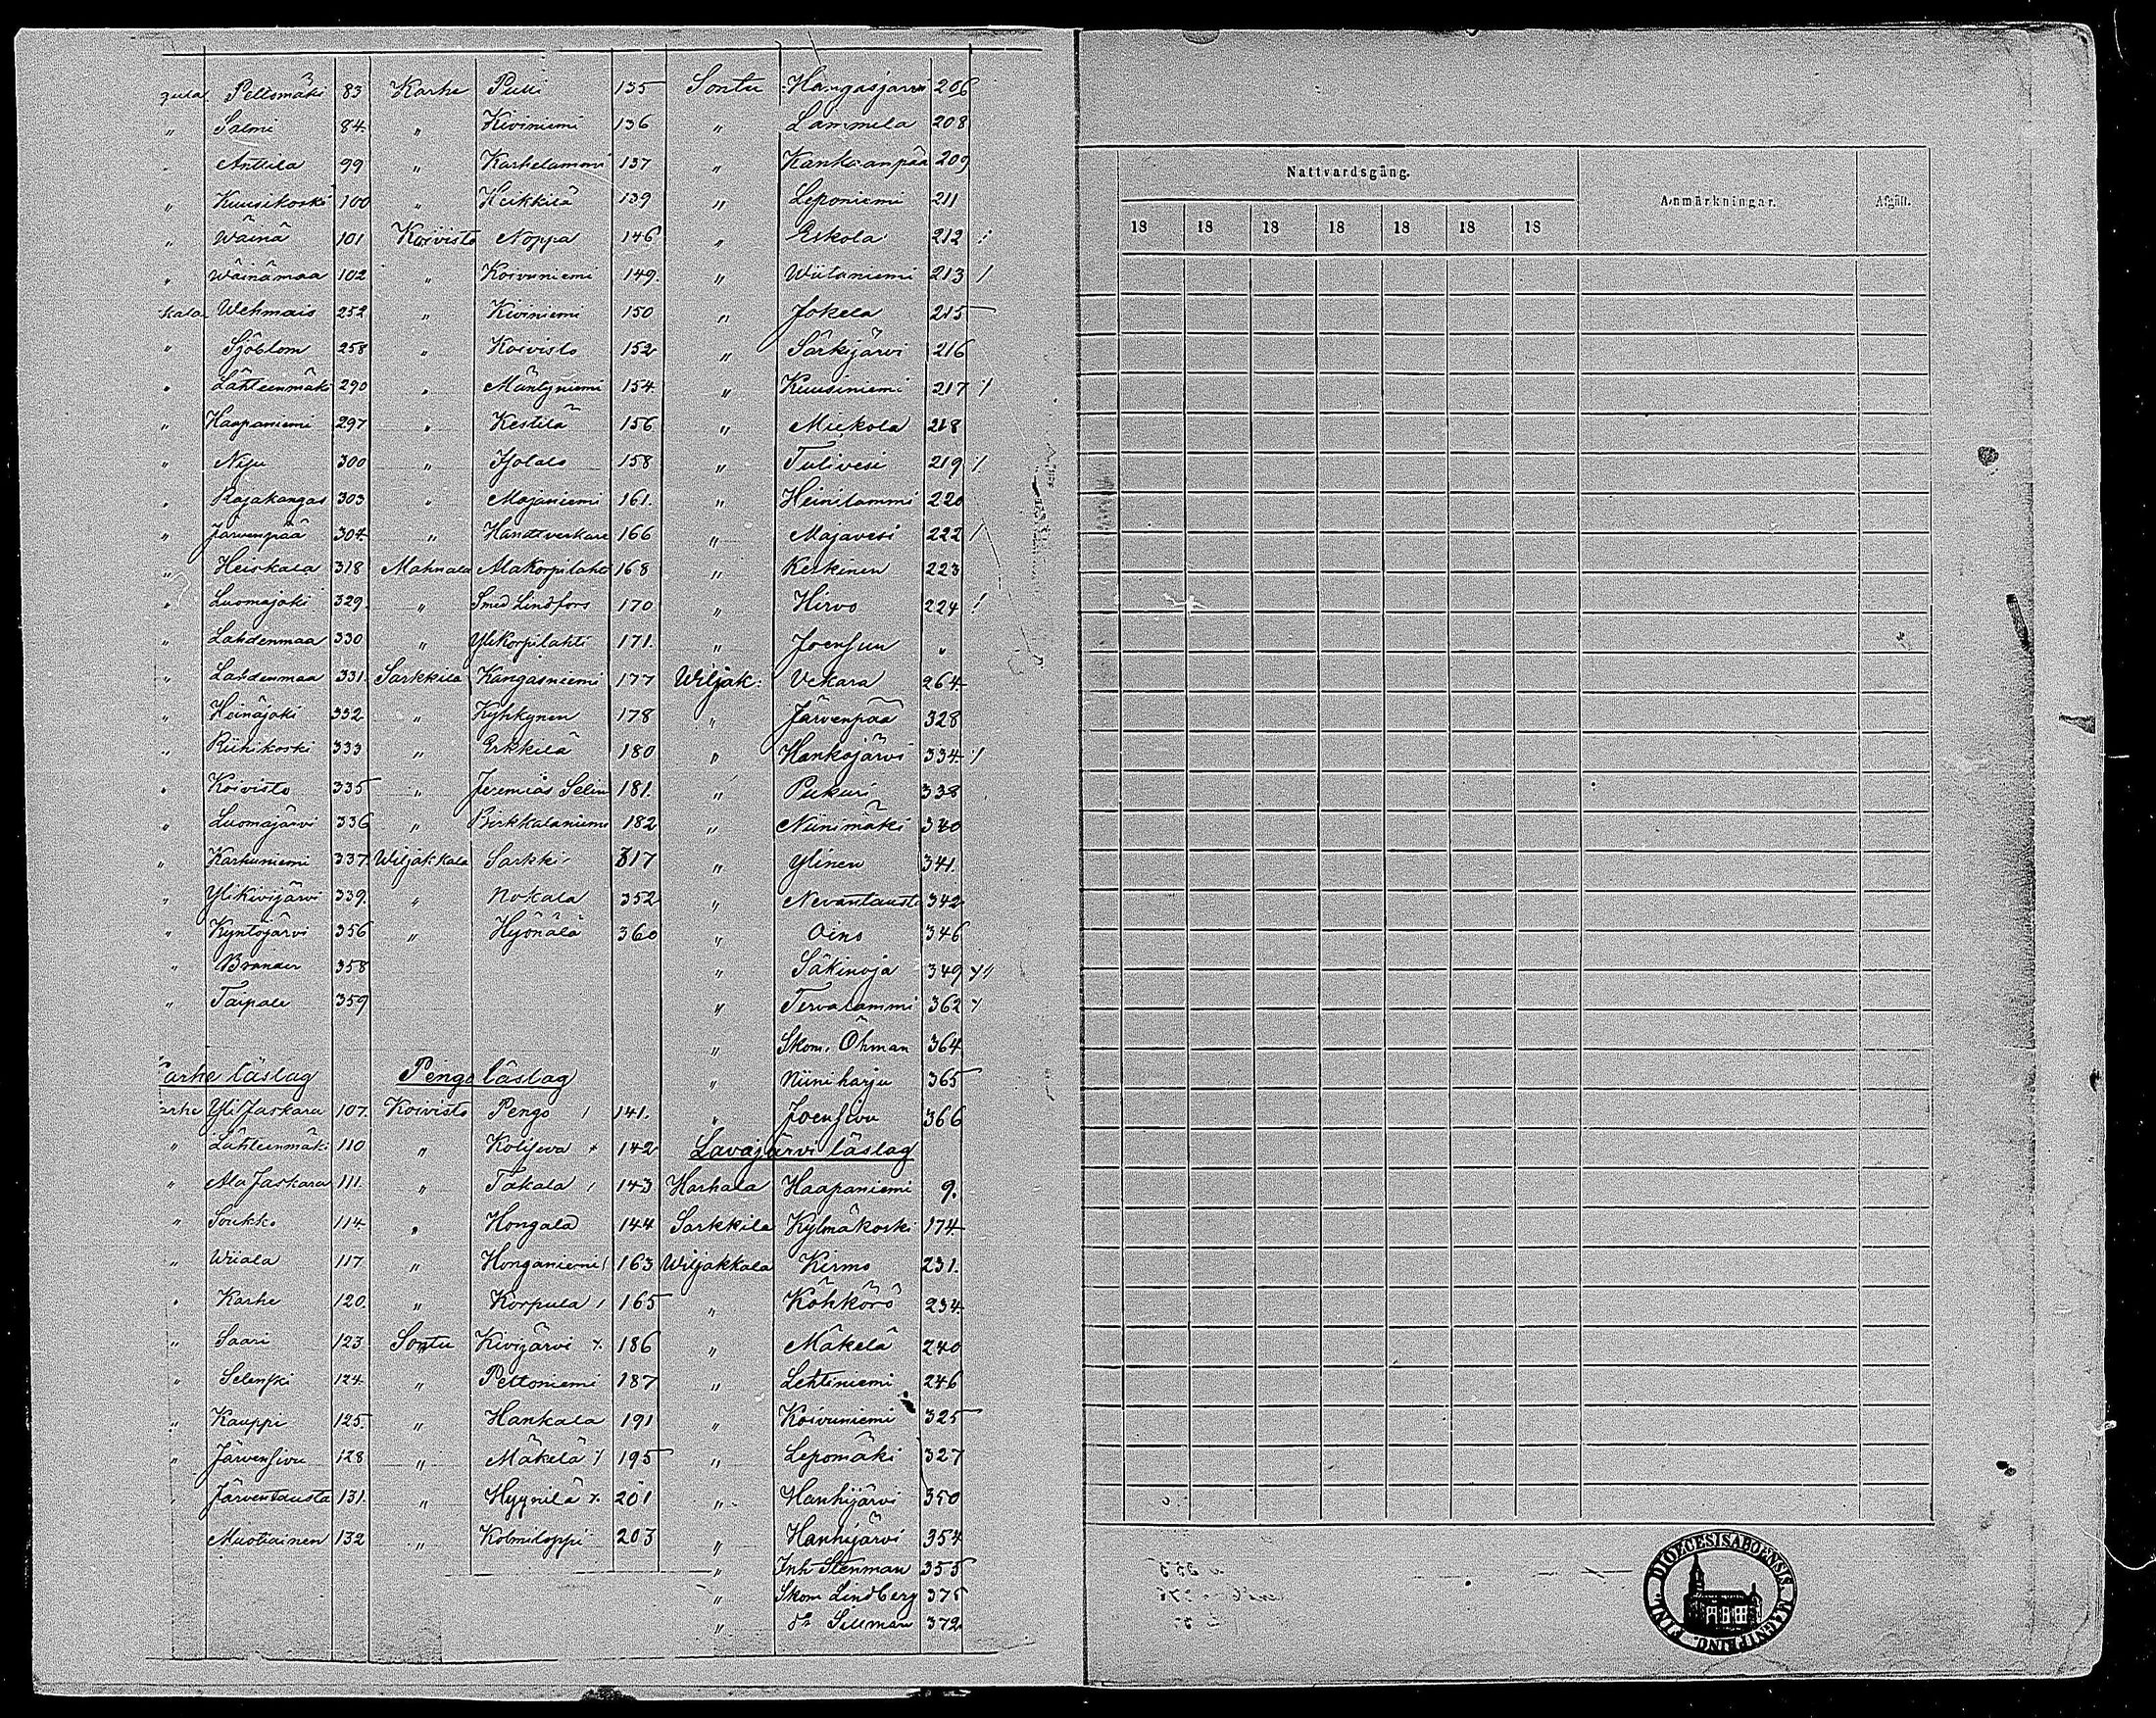 Peltomäki 83
" Salmi 84
Anttila 99
" Kuusikoski 100
" Wäinä 101
" Wäinämaa 102
kala Wehmais 252
" Sjöblom 258
" Lähteenmäki 290
" Haapaniemi 297
" Niju 300
" Rajakangas 303
" Järvenpää 304
" Heiskala 318
" Luomajoki 329
" Lahdenmaa 330
" Lahdenmaa 331
" Heinäjoki 332
" Riihikoski 333
" Koivisto 335
" Luomajärvi 336
" Karhuniemi 337
" Ylikivijärvi 339
" Kyntöjärvi 356
" Brander 358
" Taipale 359
arhe läslag
arhe Yli Jaskara 107
" Lähteenmäki 110
" Ala Jaskara 111
" Soukko 114
" Wiiala 117
" Karhe 120
" Saari 123
" Selenski 124
" Kauppi 125
" Järvensivu 128
" Järventausta 131
Muotiainen 132
Karhe Pulli 135
" Kiviniemi 136
" Karhelammi 137
" Heikkilä 139
Koivisto Noppa 146
" Koivuniemi 149
" Kiviniemi 150
" Koivisto 152
" Mäntyniemi 154
" Kestilä 156
" 158
" Majaniemi 161
" Handtverkare 166
Mahnala Alakorpilahti 168
" Smed Lindfors 170
" Ylikorpilahti 171
Sarkkila Kangasniemi 177
" Kyhkynen 178
" Erkkilä 180
" Jeremias Selin 181
" Pirkkalaniemi 182
Wiljakkala Sarkki 317
" Nokala 352
" Hyönälä 360
Pengo läslag
Koivisto Pengo 141
" 142
" Takala 143
" Hongala 144
" Honganiemi 163
" Korpula 165
Sontu Kivijärvi 186
" Peltoniemi 187
" Hankala 191
" Mäkelä 195
" Hyynilä 201
" Kolmiloppi 203
Sontu Hangasjärvi 206
" Lammila 208
" Kankaanpää 209
" Leponiemi 211
" Eskola 212
" Wiitaniemi 213
" Jokela 215
" Särkijärvi 216
" Kuusiniemi 217
" Miekola 218
" Tulivesi 219
" Heinilammi 220
" Majavesi 222
" Keskinen 223
" Hirvo 224
" Joensuu "
Wiljak: Vekara 264
" Järvenpää 328
" Hankojärvi 334
" Pukuri 338
" Niinimäki 340
" Ylinen 341
" Nevantausta 342
" Oino 346
" Säkinoja 349
" Tervalammi 362
" Skom. Öhman 364
" Niiniharju 365
" Joensivu 366
Lavajärvi läslag
Harhala Haapaniemi 9.
Sarkkila Kylmäkoski 174
Wiljakkala Kirmo 231
" Köhkörö 234
" Mäkelä 240
" Lehtiniemi 246
" Koivuniemi 325
" Lepomäki 327
" Hanhijärvi 350
" Hanhijärvi 354
" Inh Stenman 355
" Skom Lindberg 375
" do Sillman 372
Nattvardsgång.
Anmärkningar.
Afgått.
18 18 18 18 18 18 18
DIOECESIS ABOENSIS MAGNI PRINC. FINL.